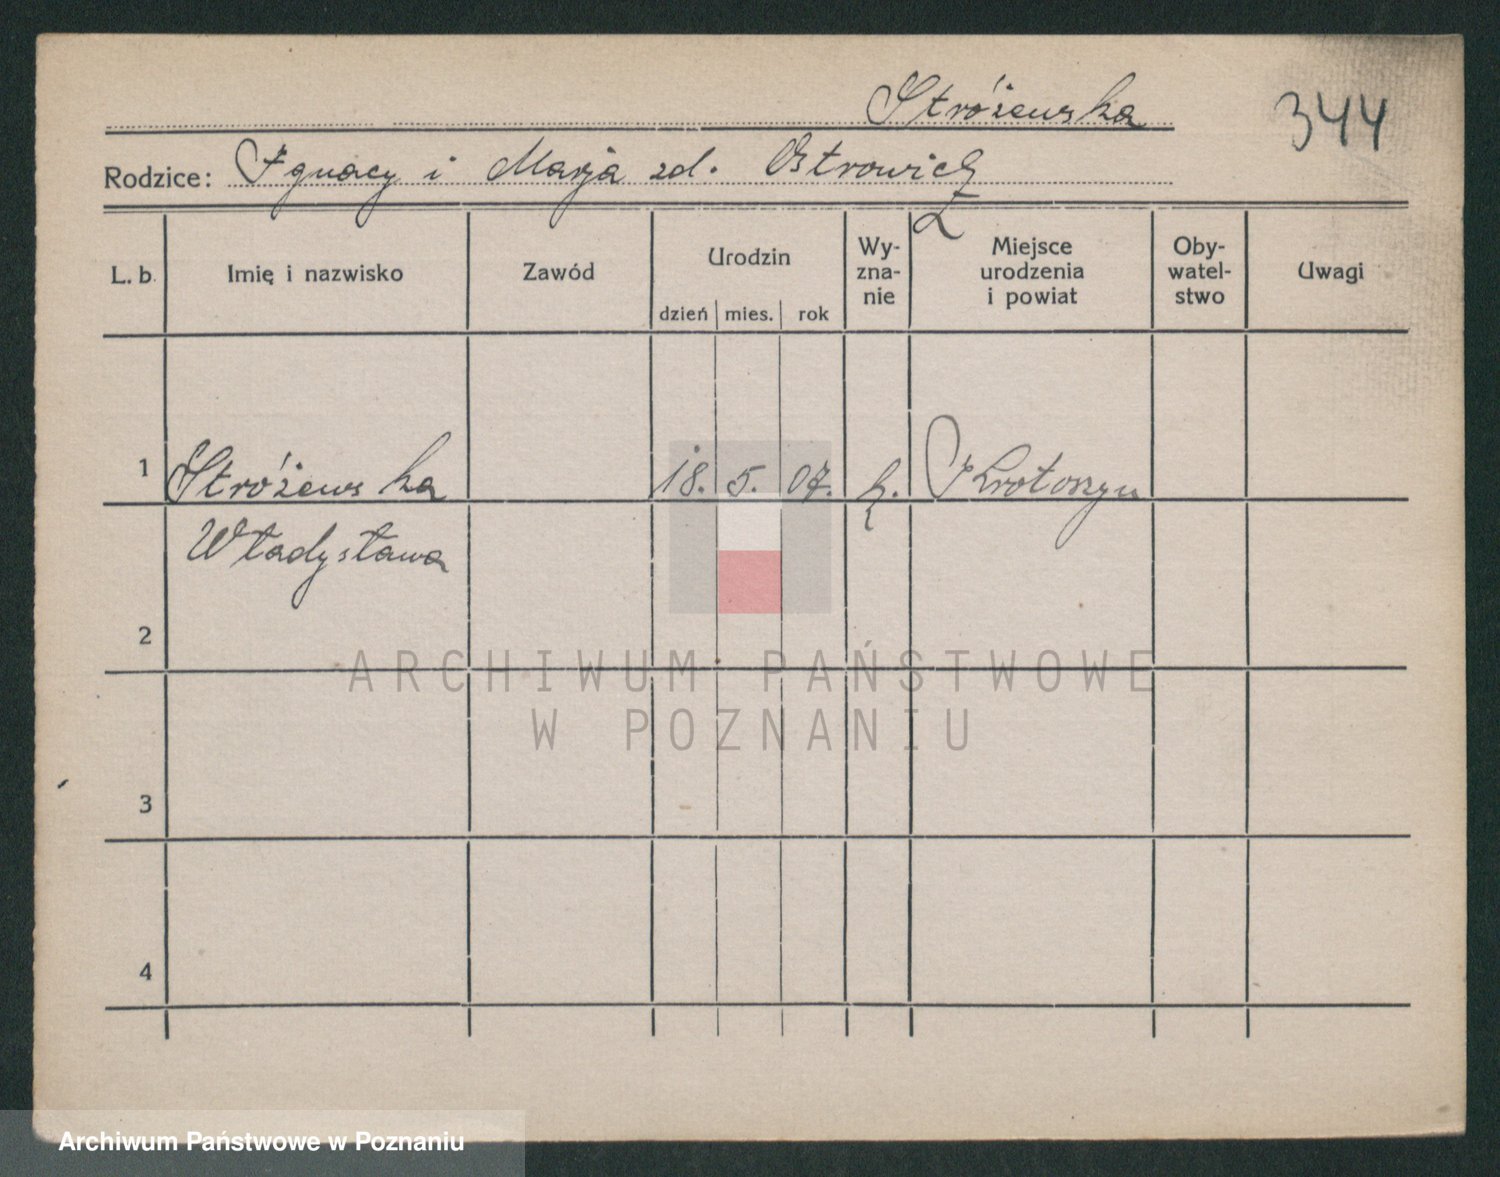 Stróżewska
344
Rodzice: Ignacy i Marja zd. Ostrowicz
L. b. Imię i nazwisko Zawód Urodzin dzień mies. rok Wy-zna-nie Miejsce urodzenia i powiat Oby-watel-stwo Uwagi
1 Stróżewska 18. 5. 07. k. Krotoszyn
Władysława
2
ARCHIWUM PAŃSTWOWE
W POZNANIU
3
4
Archiwum Państwowe w Poznaniu